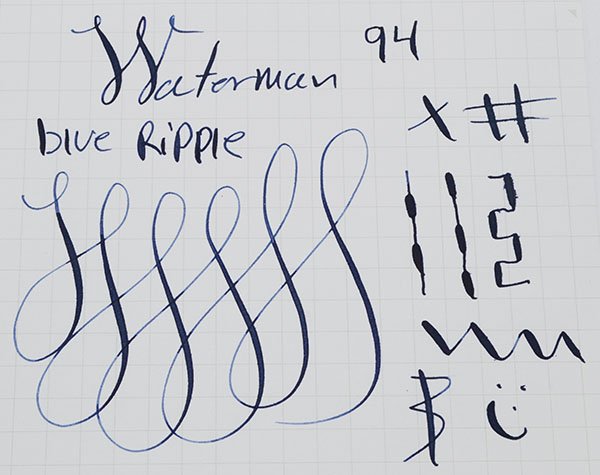 Waterman 94
blue Ripple
x #